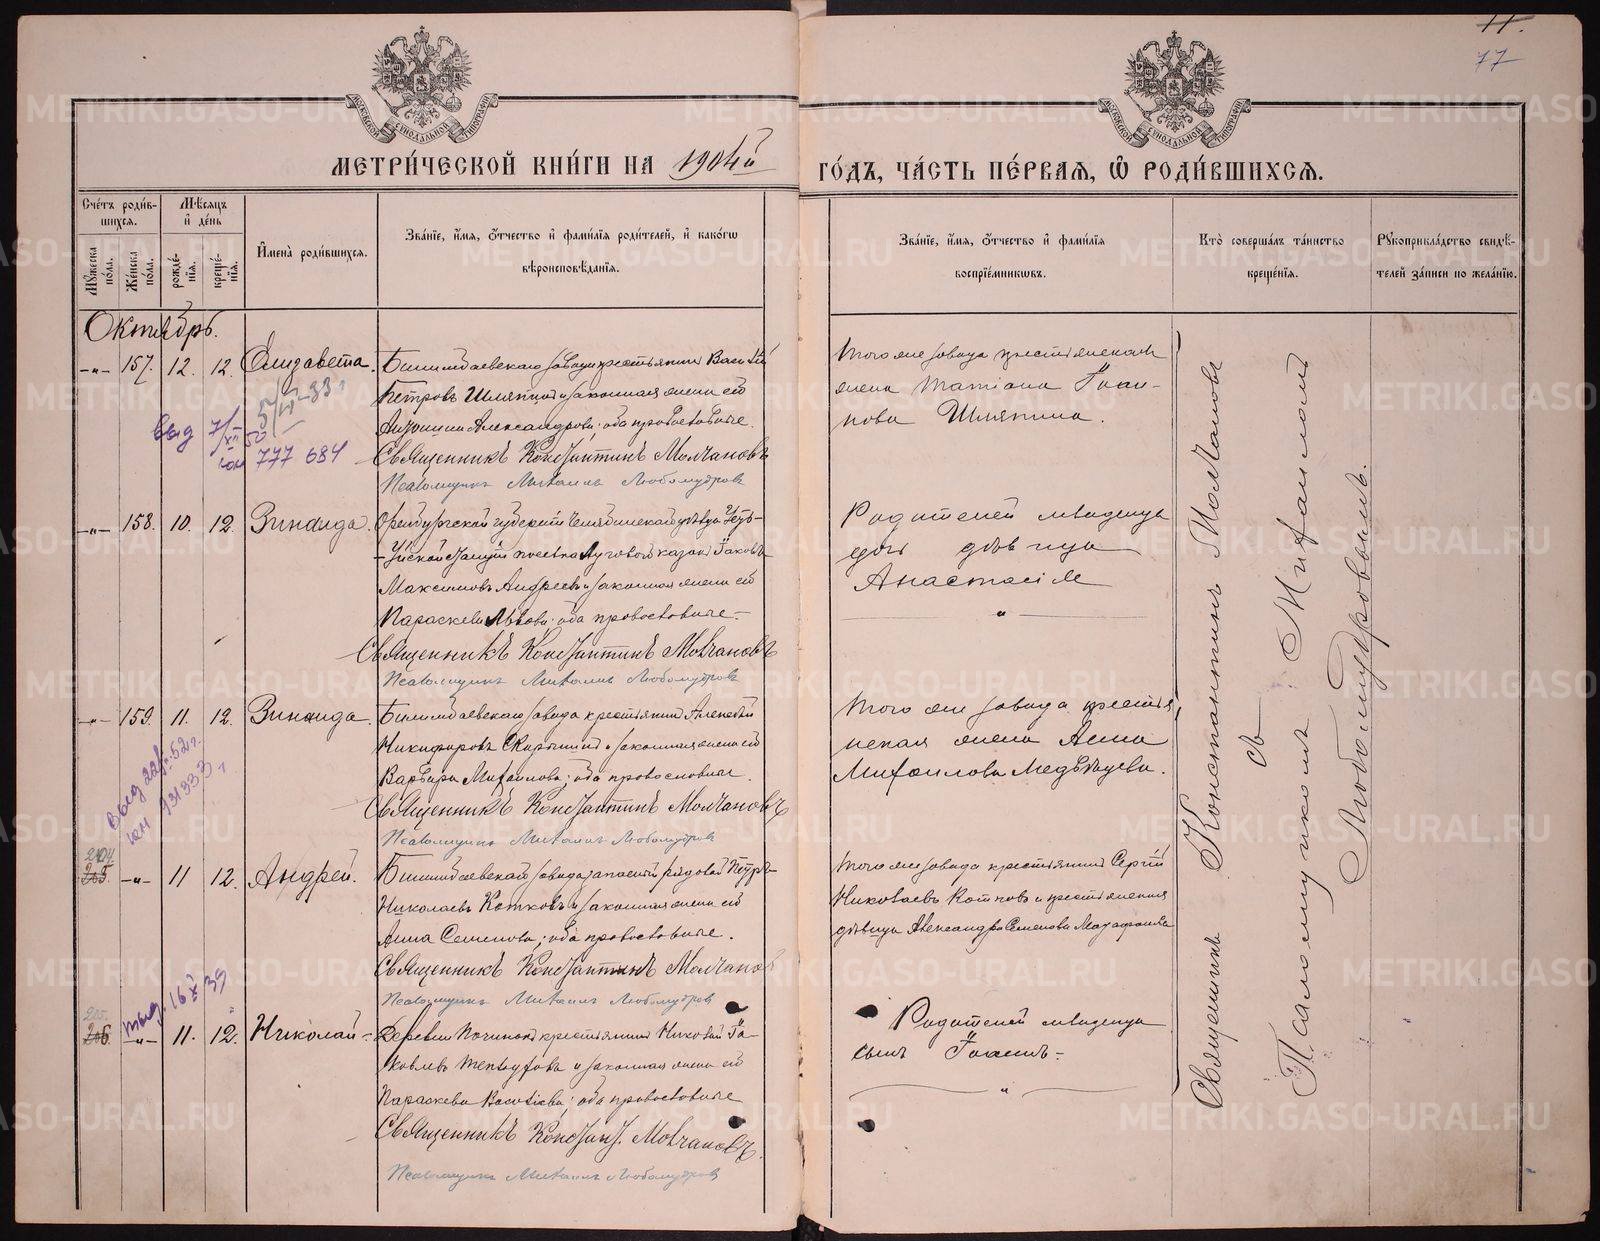 77
МЕТРИ́ЧЕСКОЙ КНИ́ГИ НА 1904й ГО́ДЪ, ЧА́СТЬ ПЕ́РВАЯ, Ѡ҆ РОДИ́ВШИХСЯ.
Сче́тъ роди́вшихся.
Мѣ́сяцъ и҆ де́нь
Мꙋ́жеска по́ла.
Же́нска по́ла.
рожде́нїя.
креще́нїя.
И҆мена̀ роди́вшихся.
Зва́нїе, и҆́мя, ѻ҆́тчество и҆ фами́лїя роди́телей, и҆ како́гѡ
вѣроисповѣ́данїя.
Зва́нїе, и҆́мя, ѻ҆́тчество и҆ фами́лїя
воспрїе́мникѡвъ.
Кто̀ соверша́лъ та́инство
креще́нїя.
Рꙋкоприкла́дство свидѣ́телей за́писи по жела́нїю.
Октябрь.
-„- 157. 12. 12. Елизавета. Билимбаевскаго завода крестьянинъ Василій
Петровъ Шляпинъ и законная жена его
Александрова; оба православные.
Священникъ Константинъ Молчановъ
Псаломщикъ Михаилъ Любомудровъ
Того же завода крестьянская
жена Татіана Іоан-
нова Шляпина.
выд 7/XII 50
юм 777 684
-„- 158. 10. 12. Зинаида. Оренбургской губерніи Челябинскаго уѣзда Усть-
-Уйской станицы поселка Лугового казакъ Іаковъ
Максимовъ Андреевъ и законная жена его
Параскева Львова; оба православные.-
Священникъ Константинъ Молчановъ
Псаломщикъ Михаилъ Любомудровъ
Родителей младенца
дочь дѣвица
Анастасія
-„- 159. 11. 12. Зинаида. Билимбаевскаго завода крестьянинъ Алексѣй
Никифоровъ и законная жена его
Варвара Михаилова; оба православные.
Священникъ Константинъ Молчановъ
Псаломщикъ Михаилъ Любомудровъ
Того же завода крестья
нская жена Анна
Михаилова Медвѣдева.
204
205. -„- 11 12. Андрей. Билимбаевскаго завода запасный рядовой Петръ
Николаевъ Котковъ и законная жена его
Анна Семенова; оба православные.
Священникъ Константинъ Молчановъ
Псаломщикъ Михаилъ Любомудровъ
Того же завода крестьянинъ Сергій
Николаевъ Котковъ и крестьянская
дѣвица Александра Семенова
205.
206. -„- 11. 12. Николай- Деревни Починокъ крестьянинъ Николай Іа-
ковлевъ и законная жена его
Параскева Васильева; оба православные
Священникъ Констант. Молчановъ.
Псаломщикъ Михаилъ Любомудровъ
Родителей младенца
сынъ Іоаннъ-
Священникъ Константинъ Молчановъ
съ
Псаломщикомъ Михаиломъ
Любомудровымъ.
METRIKI.GASO-URAL.RU